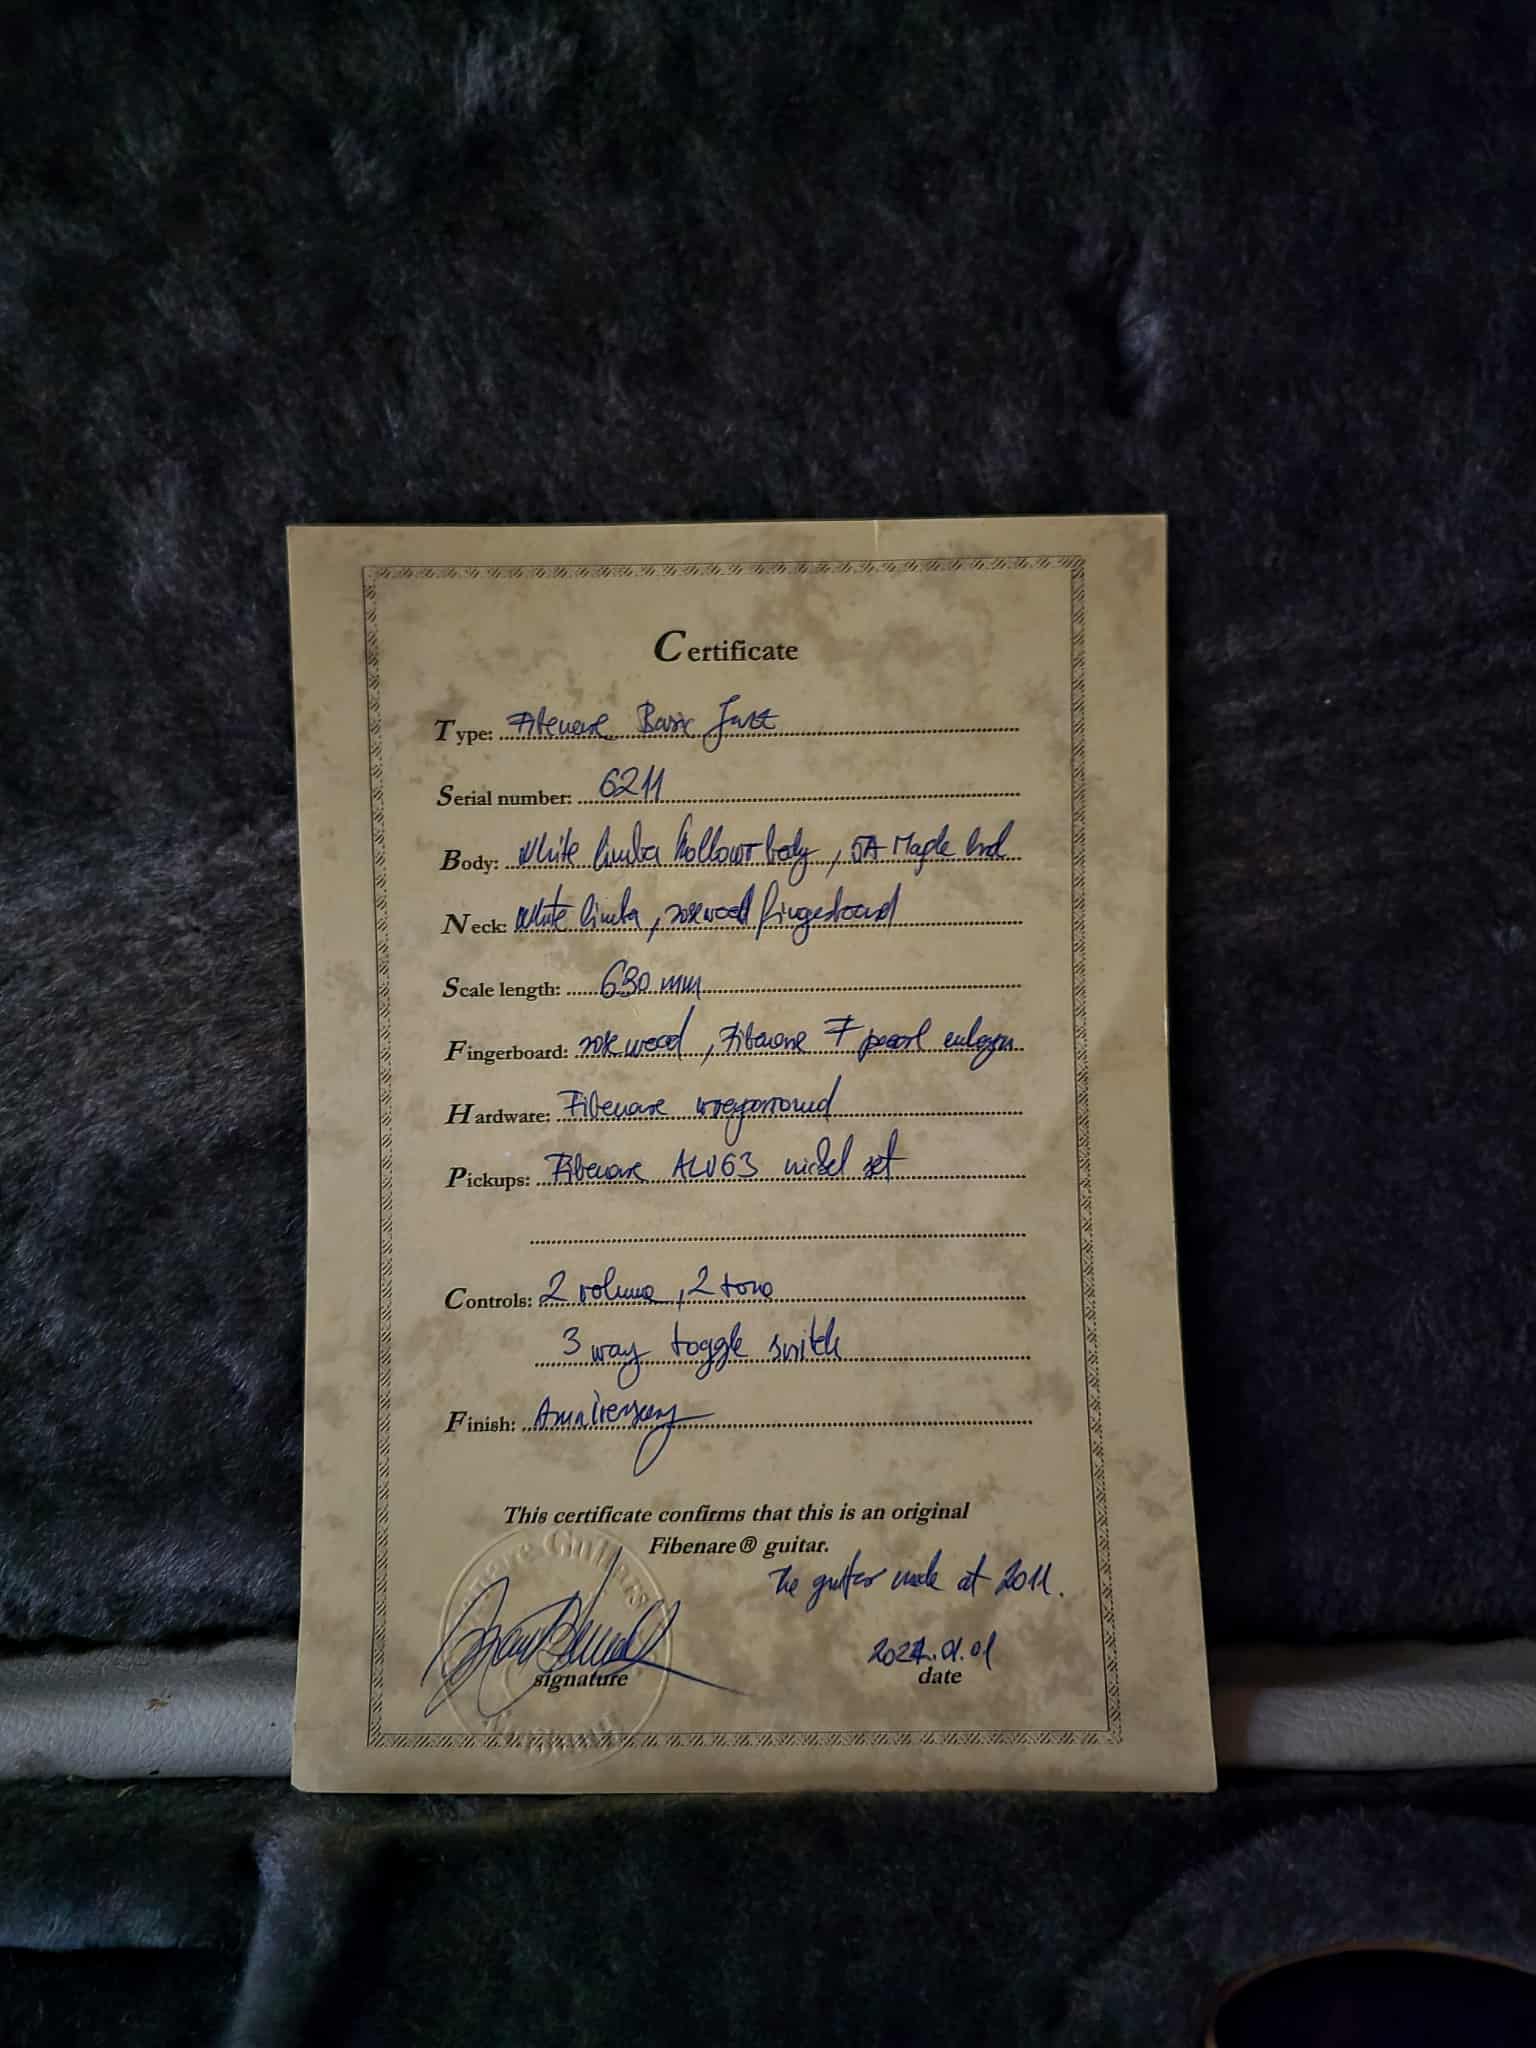 Certificate
Type: Fibenare Basic Jazz
Serial number: 6211
Body: White limba hollow body, 5A Maple
Neck: White limba, rosewood fingerboard
Scale length: 630 mm
Fingerboard: rosewood, Fibenare F pearl
Hardware: Fibenare
Pickups: Fibenare ALV63 nickel set
Controls: 2 volume, 2 tone
3 way toggle switch
Finish: Anniversary
This certificate confirms that this is an original
Fibenare® guitar.
The guitar made at 2011.
Guitars
signature
.01.01
date